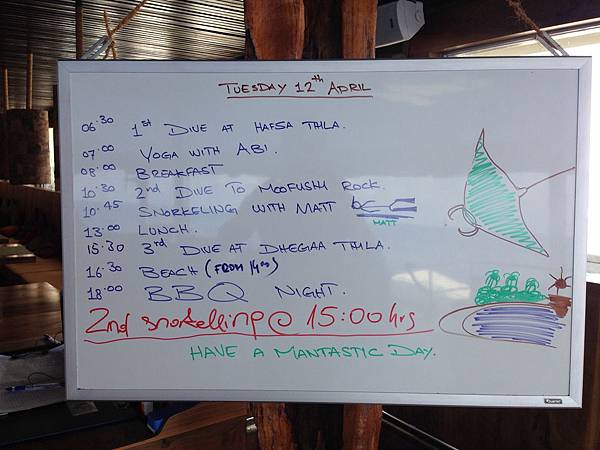 TUESDAY 12th APRIL
06:30 1st DIVE AT HAFSA THILA.
07:00 YOGA WITH ABI.
08:00 BREAKFAST
10:30 2nd DIVE TO MOOFUSHI ROCK.
10:45 SNORKELING WITH MATT
MATT
13:00 LUNCH.
15:30 3rd DIVE AT DHEGAA THILA.
16:30 BEACH (FROM
18:00 BBQ NIGHT.
2nd snorkelling @ 15:00 hrs
HAVE A MANTASTIC DAY.